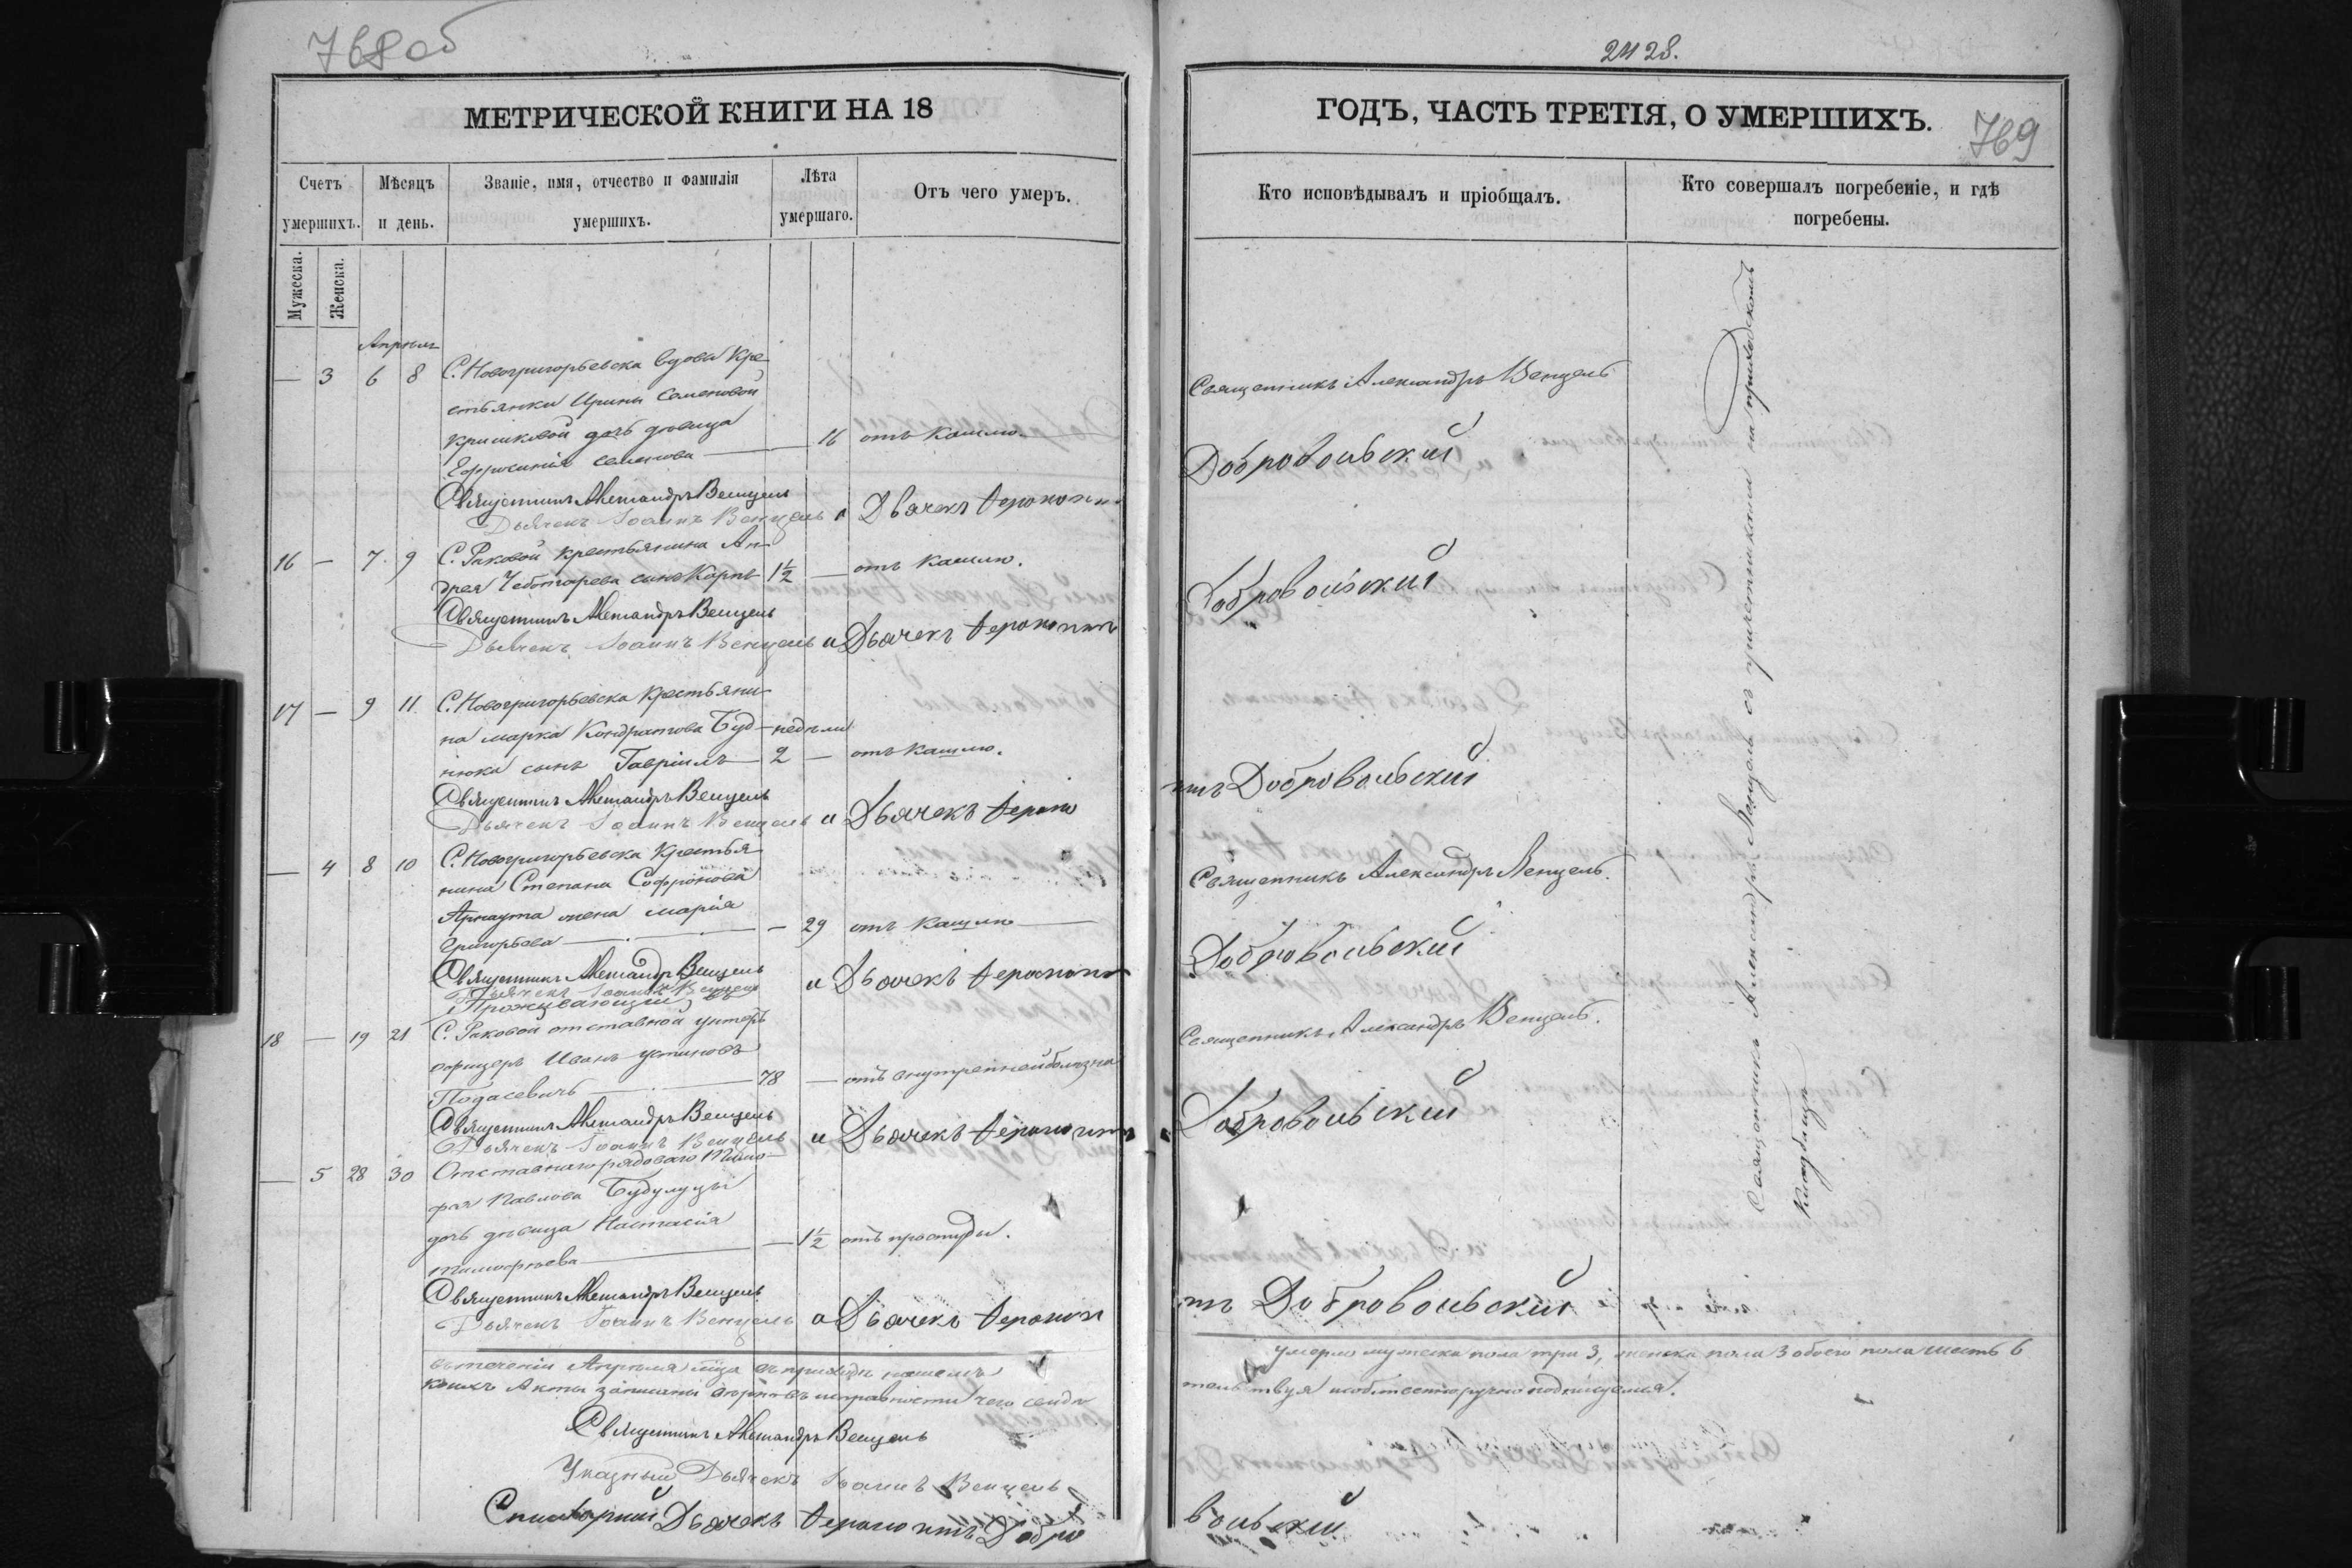 768 об
МЕТРИЧЕСКОЙ КНИГИ НА 18
Счетъ умершихъ.
Мѣсяцъ и день.
Званіе, имя, отчество и фамилія умершихъ.
Лѣта умершаго.
Отъ чего умеръ.
Мужеска.
Женска.
Апрѣль
— 3 6 8 С. Новогригорьевска вдовы Кре
стьянки Ирины Семеновой
Кришковой дочь дѣвица
Ефросинія Семенова — 16 отъ кашлю.
Священникъ Александръ Венцель
Дьячекъ Іоаннъ Венцель и Дьячекъ Ферапонтъ
16 — 7 9 С. Раковой крестьянина Ан
дрея Чеботарева сынъ Карпъ 1½ — отъ кашлю.
Священникъ Александръ Венцель
Дьячекъ Іоаннъ Венцель и Дьячекъ Ферапонтъ
17 — 9 11 С. Новогригорьевска крестьяни
на Марка Кондратова Буд недѣли
нюка сынъ Гавріилъ 2 — отъ кашлю.
Священникъ Александръ Венцель
Дьячекъ Іоаннъ Венцель и Дьячекъ Ферапо
— 4 8 10 С. Новогригорьевска крестья
нина Степана Софронова
Арнаута жена Марія
Григорьева — 29 отъ кашлю
Священникъ Александръ Венцель
Дьячекъ Іоаннъ Венцель и Дьячекъ Ферапонтъ
Проживающій въ
18 — 19 21 С. Раковой отставной унтеръ
офицеръ Иванъ Устиновъ
Подасевичъ 78 — отъ внутренней болѣзни
Священникъ Александръ Венцель
Дьячекъ Іоаннъ Венцель и Дьячекъ Ферапонтъ
— 5 28 30 Отставного рядоваго Тимо
фея Павлова Будулуцы
дочь дѣвица Настасія
Тимофѣева — 1½ отъ простуды.
Священникъ Александръ Венцель
Дьячекъ Іоаннъ Венцель и Дьячекъ Ферапон
Въ теченіи Апрѣля мѣсяца въ приходѣ нашемъ
коихъ Акты записаны въ исправности чего свидѣ
Священникъ Александръ Венцель
Указный Дьячекъ Іоаннъ Венцель
Дьячекъ Ферапонтъ Добро
2428.
ГОДЪ, ЧАСТЬ ТРЕТІЯ, О УМЕРШИХЪ.
769
Кто исповѣдывалъ и пріобщалъ.
Кто совершалъ погребеніе, и гдѣ погребены.
Священникъ Александръ Венцель
Добровольскій
Добровольскій
нтъ Добровольскій
Священникъ Александръ Венцель.
Добровольскій
Священникъ Александръ Венцель.
Добровольскій
тъ Добровольскій
умерло мужска пола три 3, женска пола 3 обоего пола шесть 6
тельствуя собственноручно подписуемся.
вольскій
Священникъ Александръ Венцель съ причетниками на приходскомъ
Кладбищѣ